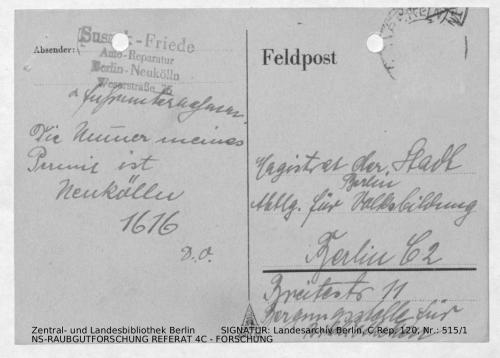 Absender:
Susnik-Friede
Auto-Reparatur
Berlin-Neukölln
Weserstraße
Die Numer meines
Permis ist
Neukölln
1616
D.O.
Feldpost
Magistrat der Stadt
Berlin
Abtlg. für Volksbildung
Berlin C2
Breitestr. 11
Bergungsstelle für
Zentral- und Landesbibliothek Berlin
NS-RAUBGUTFORSCHUNG REFERAT 4C - FORSCHUNG
SIGNATUR: Landesarchiv Berlin, C Rep. 120, Nr.: 515/1